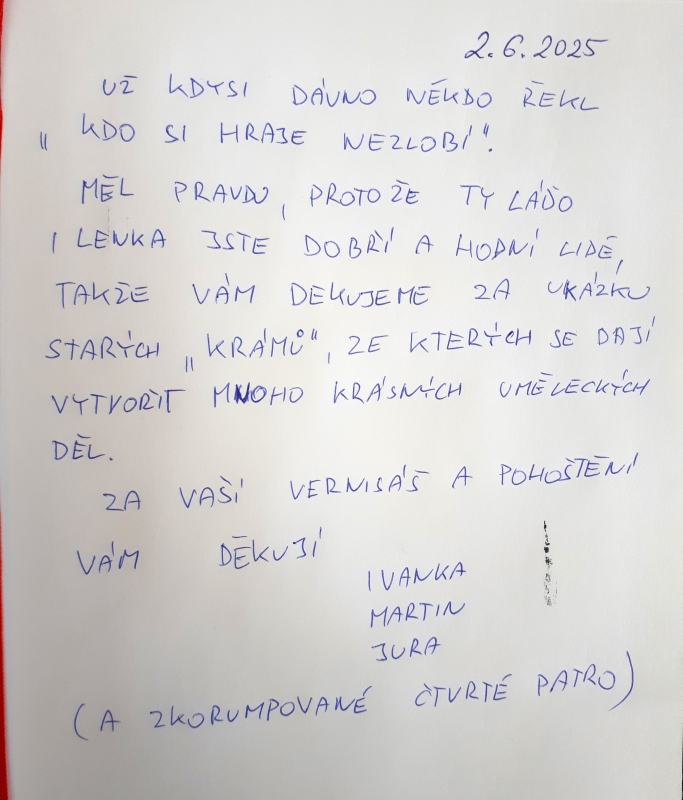 2.6.2025
UŽ KDYSI DÁVNO NĚKDO ŘEKL
„ KDO SI HRAJE NEZLOBÍ".
MĚL PRAVDU, PROTOŽE TY LÁĎO
I LENKA JSTE DOBŘÍ A HODNÍ LIDÉ,
TAKŽE VÁM DEKUJEME ZA UKÁZKU
STARÝCH „KRÁMŮ", ZE KTERÝCH SE DAJÍ
VYTVOŘIT MNOHO KRÁSNÝCH UMĚLECKÝCH
DĚL.
ZA VAŠÍ VERNISÁŠ A POHOŠTĚNÍ
VÁM DĚKUJÍ
IVANKA
MARTIN
JURA
(A ZKORUMPOVANÉ ČTVRTÉ PATRO)